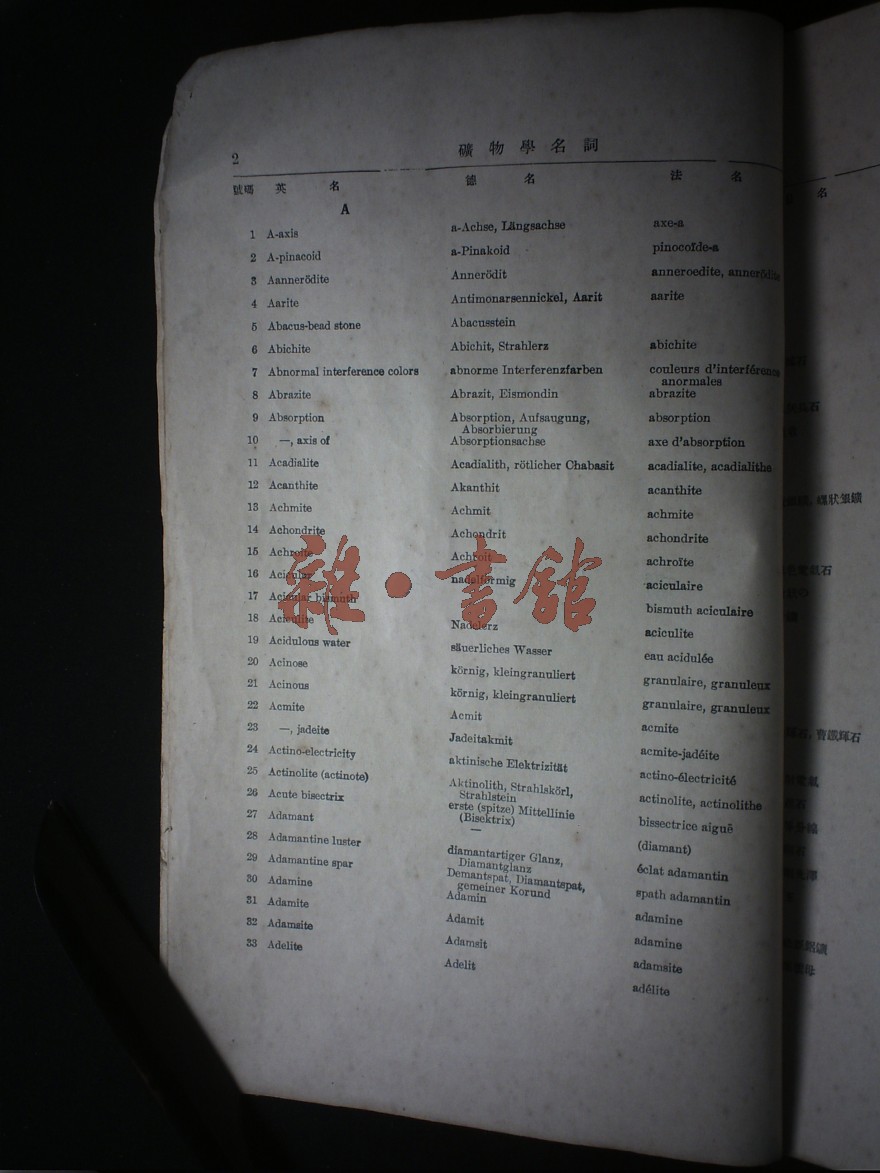 2 礦物學名詞
號碼 英名 德名 法名
A
1 A-axis a-Achse, Längsachse axe-a
2 A-pinacoid a-Pinakoid pinocoïde-a
3 Aannerödite Annerödit anneroedite, annerödite
4 Aarite Antimonarsennickel, Aarit aarite
5 Abacus-bead stone Abacusstein
6 Abichite Abichit, Strahlerz abichite
7 Abnormal interference colors abnorme Interferenzfarben couleurs d'interférence
anormales
8 Abrazite Abrazit, Eismondin abrazite
9 Absorption Absorption, Aufsaugung, absorption
Absorbierung
10 —, axis of Absorptionsachse axe d'absorption
11 Acadialite Acadialith, rötlicher Chabasit acadialite, acadialithe
12 Acanthite Akanthit acanthite
13 Achmite Achmit achmite
14 Achondrite Achondrit achondrite
15 Achroite Achroit achroïte
16 Acicular nadelförmig aciculaire
17 Acicular bismuth bismuth aciculaire
18 Aciculite Nadelerz aciculite
19 Acidulous water säuerliches Wasser eau acidulée
20 Acinose körnig, kleingranuliert granulaire, granuleux
21 Acinous körnig, kleingranuliert granulaire, granuleux
22 Acmite Acmit acmite
23 —, jadeite Jadeitakmit acmite-jadéite
24 Actino-electricity aktinische Elektrizität actino-électricité
25 Actinolite (actinote) Aktinolith, Strahlskörl, actinolite, actinolithe
Strahlstein
26 Acute bisectrix erste (spitze) Mittellinie bissectrice aiguë
(Bisektrix)
27 Adamant — (diamant)
28 Adamantine luster diamantartiger Glanz, éclat adamantin
Diamantglanz
29 Adamantine spar Demantspat, Diamantspat, spath adamantin
gemeiner Korund
30 Adamine Adamin adamine
31 Adamite Adamit adamine
32 Adamsite Adamsit adamsite
33 Adelite Adelit adélite
雜·書館
名
螺狀銀鑛
石